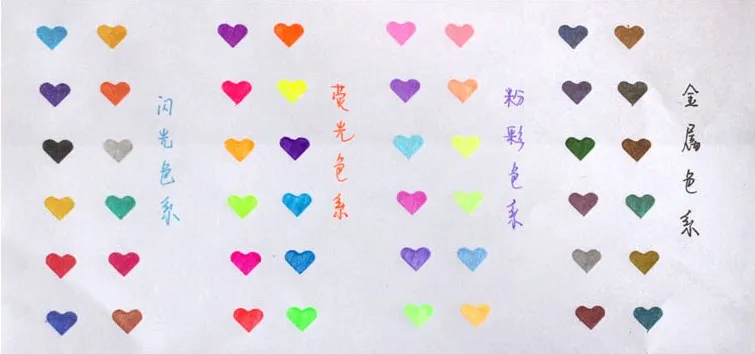 闪光色系
荧光色系
粉彩色系
金属色系